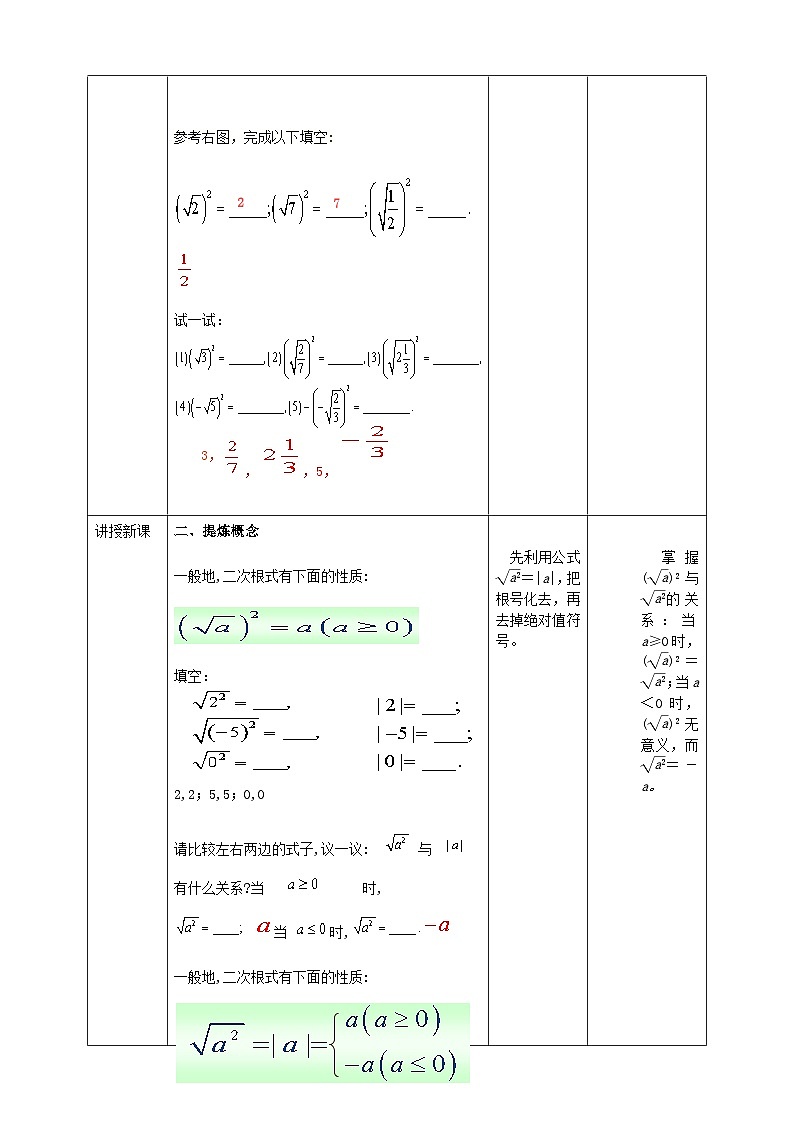 参考右图，完成以下填空：
(√2)² = ____2;(√7)² = ____7;(√(1/2))² = ____.
1/2
试一试：
(1)(√3)² = ____,(2)(√(2/7))² = ____,(3)(√(2 1/3))² = ____,
(4)(−√5)² = ____,(5)−(−√(2/3))² = ____.
3, 2/7, 2 1/3, 5, −2/3
讲授新课
二、提炼概念
一般地,二次根式有下面的性质:
(√a)² = a (a ≥ 0)
填空:
√2² = ___, | 2 |= ___;
√(−5)² = ___, | −5 |= ___;
√0² = ___, | 0 |= ___.
2,2；5,5；0,0
请比较左右两边的式子,议一议: √a² 与 |a|
有什么关系?当 a ≥ 0 时,
√a² = ___; a当 a ≤ 0时, √a² = ___.−a
一般地,二次根式有下面的性质:
√a² =| a |={a(a ≥ 0)
−a(a ≤ 0)
先利用公式
√a²＝|a|,把
根号化去，再
去掉绝对值符
号。
掌握
(√a)²与
√a²的关
系：当
a≥0时，
(√a)²＝
√a²;当a
＜0时，
(√a)²无
意义，而
√a²＝－
a。